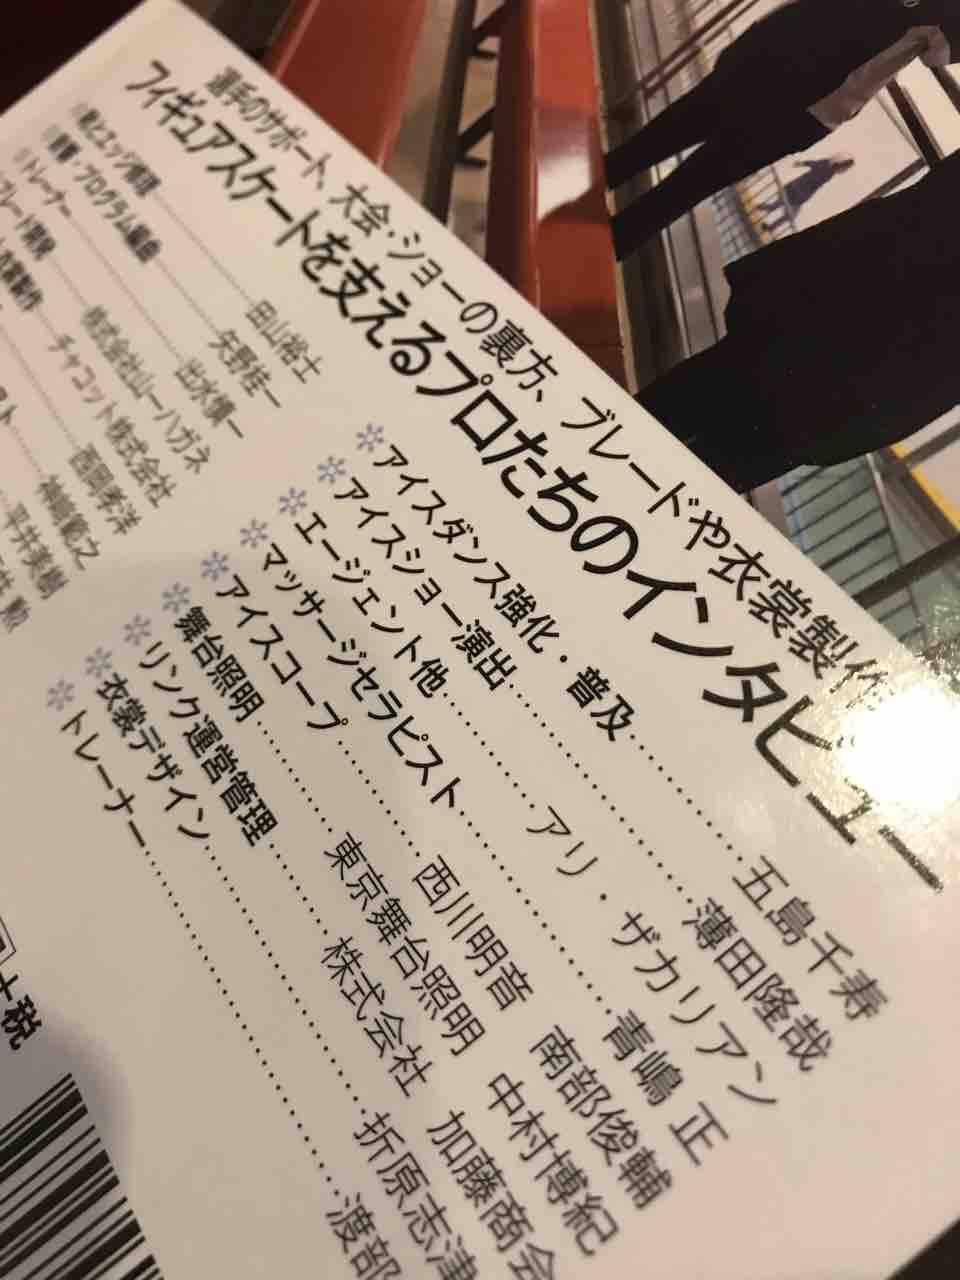 選手のサポート、大会・ショーの裏方、ブレードや衣裳製作
フィギュアスケートを支えるプロたちのインタビュー
靴とエッジ修理……田山裕士
音響・プログラム編曲……矢野桂一
トレーナー……出水慎一
ブレード開発……株式会社山一ハガネ
衣裳製作……チャコット株式会社
西岡孝洋
神崎範之
平井英樹
勲
アイスダンス強化・普及……五島千寿
アイスショー演出……薄田隆哉
エージェント他……アリ・ザカリアン
マッサージセラピスト……青嶋 正
アイスコープ……西川明音 南部俊輔
舞台照明……東京舞台照明 中村博紀
リンク運営管理……株式会社 加藤商会
衣裳デザイン……折原志津
トレーナー……渡部
+税